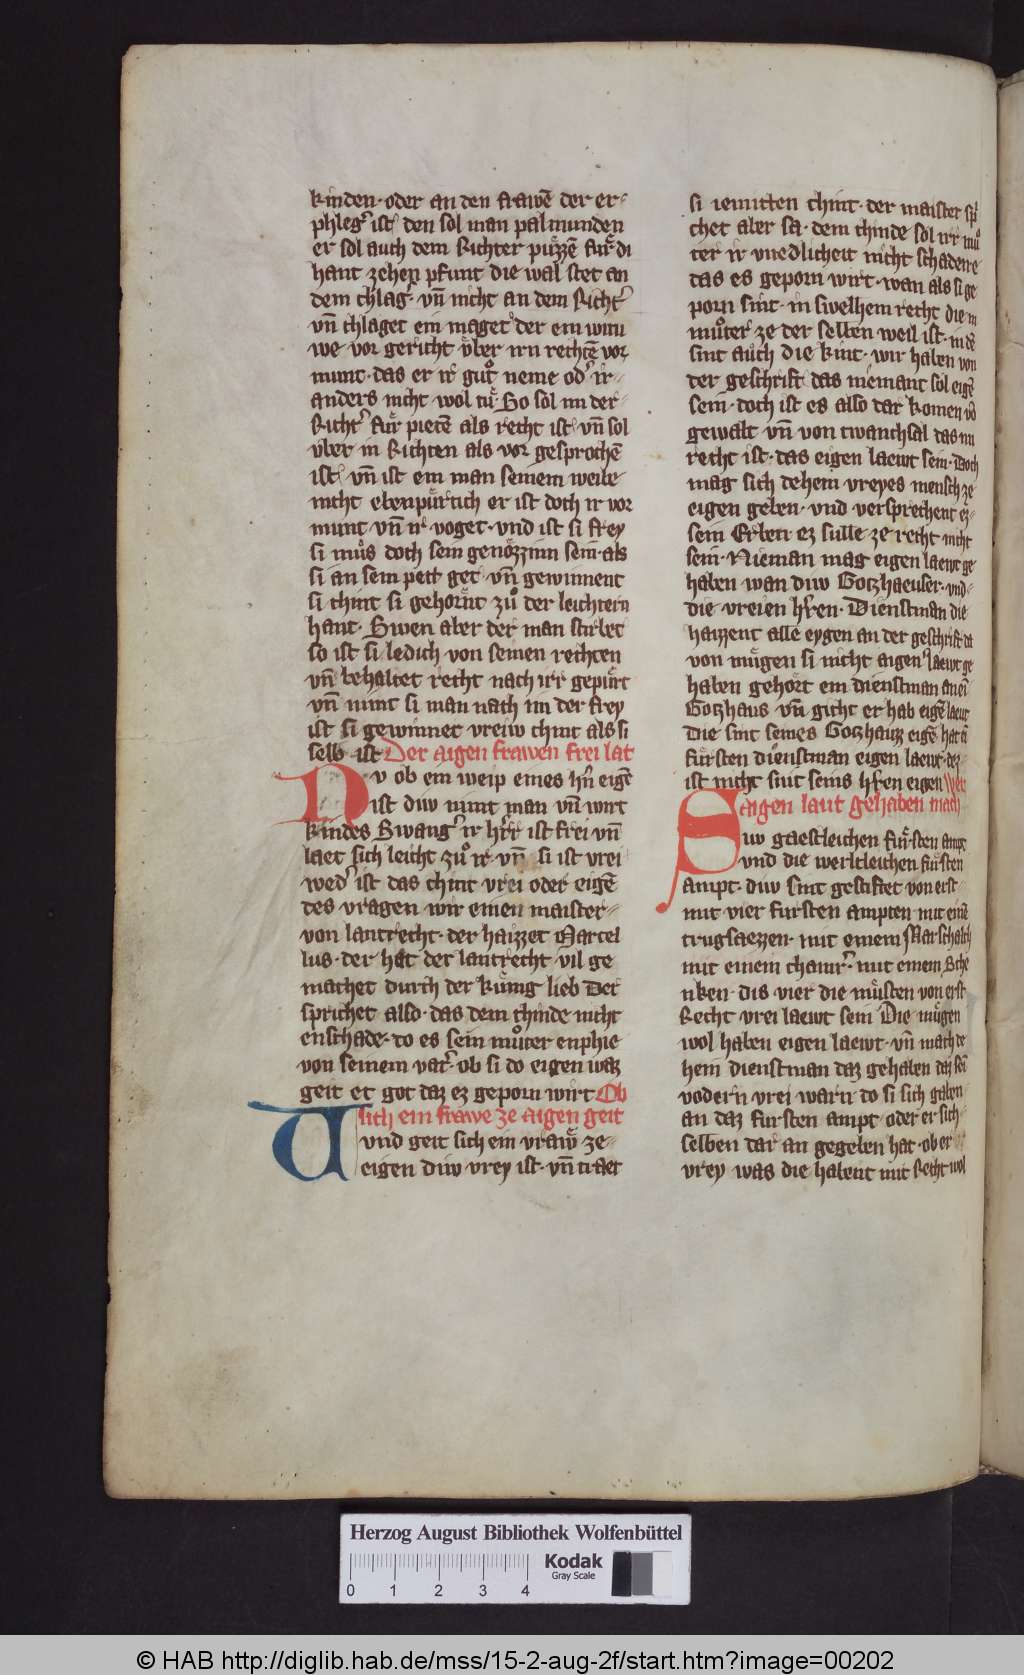 kinden · oder an den frawē der er⸗
phleg᷑ ist den sol man palmunden
er sol auch dem Richter puͤzzē fuͤr di
hant zehen pfunt die wal stet an
dem chlag᷑ · vn̄ nicht an dem Richt᷑
vn̄ chlaget ein maget oder ein witu
we vor gericht vͤber irn rechtē vor
munt · das er ir guͦt neme od᷑ ir⸗
anders nicht wol tuͤ · So sol im der⸗
Richt᷑ fuͤr pietē als recht ist vn̄ sol
vber in Richten als vor gesprochē
ist · vn̄ ist ein man seinem weibe
nicht ebenpuͤrtich er ist doch ir vor
munt vn̄ ir voget · vnd ist si frey
si muͦs doch sein genoͤzzinn sein · als
si an sein pett get · vn̄ gewinnent
si chint si gehoͤrnt zuͦ der leichtern
hant · Swen aber der man stirbet
so ist si ledich von seinen rechten
vn̄ behaltet recht nach irr gepuͤrt
vn̄ nimt si man nach im der frey
ist si gewinnet vreiw chint als si
selb ist Der aigen frawen frei lat
Nv ob ein weip eines h᷑n eigē
ist diw nimt man vn̄ wirt
kindes Swang᷑ ir h᷑r ist frei vn̄
laet sich leicht zuͦ ir · vn̄ si ist vrei
wed᷑ ist das chint vrei oder eigē
des vragen wir einen maister⸗
von lantrecht · der haizzet Marcel
lus · der hat der lantrecht vil ge
machet durch der kuͤnig lieb Der
sprichet also · das dem chinde nicht
enschade · do es sein muͦter enphie
von seinem vat᷑ · ob si do eigen waz
geit et got daz ez geporn wirt Ob
sich ein frawe ze aigen geit
Vnd geit sich ein vraw ze⸗
eigen diw vrey ist · vn̄ traet
si iemitten chint · der maister sp᷑
chet aber sa · dem chinde sol irr muͦ
ter ir vnedlicheit nicht schaden e
das es geporn wirt · wan als si ge
porn sint · in swelhem recht die in
muͦter ze der selben weil ist · in dē
sint auch die kint · wir haben von
der geschrift das niemant sol eigē
sein · doch ist es also dar komen vō
gewalt vn̄ von twanchsal das nu
recht ist · das eigen laewt sein · Doch
mag sich dehein vreyes mensch ze
eigen geben · vnd versprechent ez⸗
sein Erben ez sulle ze recht nicht
sein · Nieman mag eigen laewt ge
haben wan diw Gotzhaeuser · vnd⸗
die vreien h᷑ren · Dienstman die
haizzent alle eygen an der geschrift da
von muͤgen si nicht aigen laewt ge
haben gehoͤrt ein dienstman an ein
Gotzhaus vn̄ gicht er hab eigē laewt
Die sint seines Gotzhauz eigē hat ā
fuͤrsten dienstman eigen laewt · dez⸗
ist nicht sint seins h᷑ren eigen Wer
aigen laut gehaben mach
Siw gaestleichen fuͤrsten ampt
vnd die werltleichen fuͤrsten
ampt · diw sint gestiftet von erst⸗
mit vier fursten ampten mit einē
trugsaezzen · mit einem Marschalch
mit einem chamr᷑ · mit einem Sche
nken · dis vier die muͤsten von erst
Recht vrei laewt sein Die muͤgen
wol haben eigen laewt · vn̄ mach de
hein dienstman daz gehaben daz sei
vodern vrei warn do si sich gaben
an daz fursten ampt oder er sich⸗
selben dar an gegeben hat · ob er
vrey was die habent mit Recht wol
Herzog August Bibliothek Wolfenbüttel
0 1 2 3 4
Kodak
Gray Scale
© HAB http://diglib.hab.de/mss/15-2-aug-2f/start.htm?image=00202